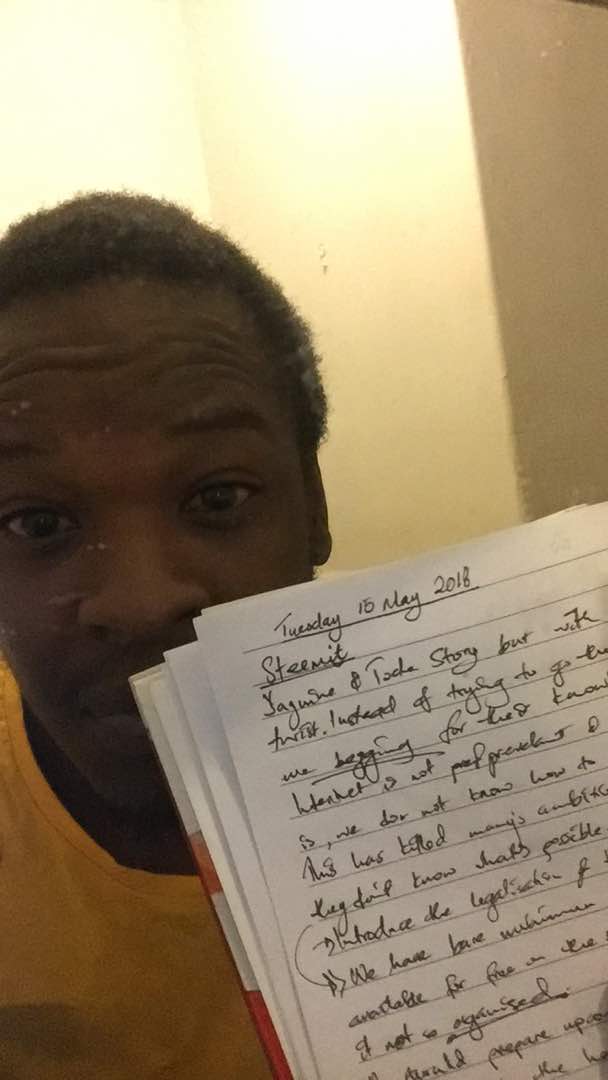 Tuesday 15 May 2018
Steemit
Story but with
twist. Instead of trying to go the
we begging for their know
Internet is not prevelant &
is, we do not know how to
This has killed many's ambitio
they don't know what's possible
Introduce the legalisation of
We have bare minimum
available for free on the
if not so organised.
should prepare upco
the